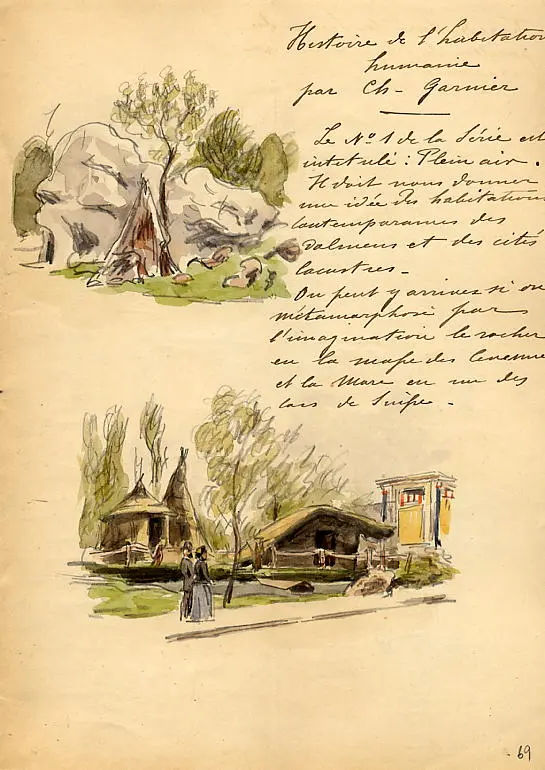 Histoire de l'habitation
humaine
par Ch- Garnier
Le Nº 1 de la Série est
intitulé : Plein air.
Il doit nous donner
une idée des habitations
contemporaines des
dolmens et des cités
lacustres -
On peut y arriver si on
métamorphose par
l'imagination le rocher
en la masse des Cevennes
et la Mare en un des
lacs de Suisse -
69